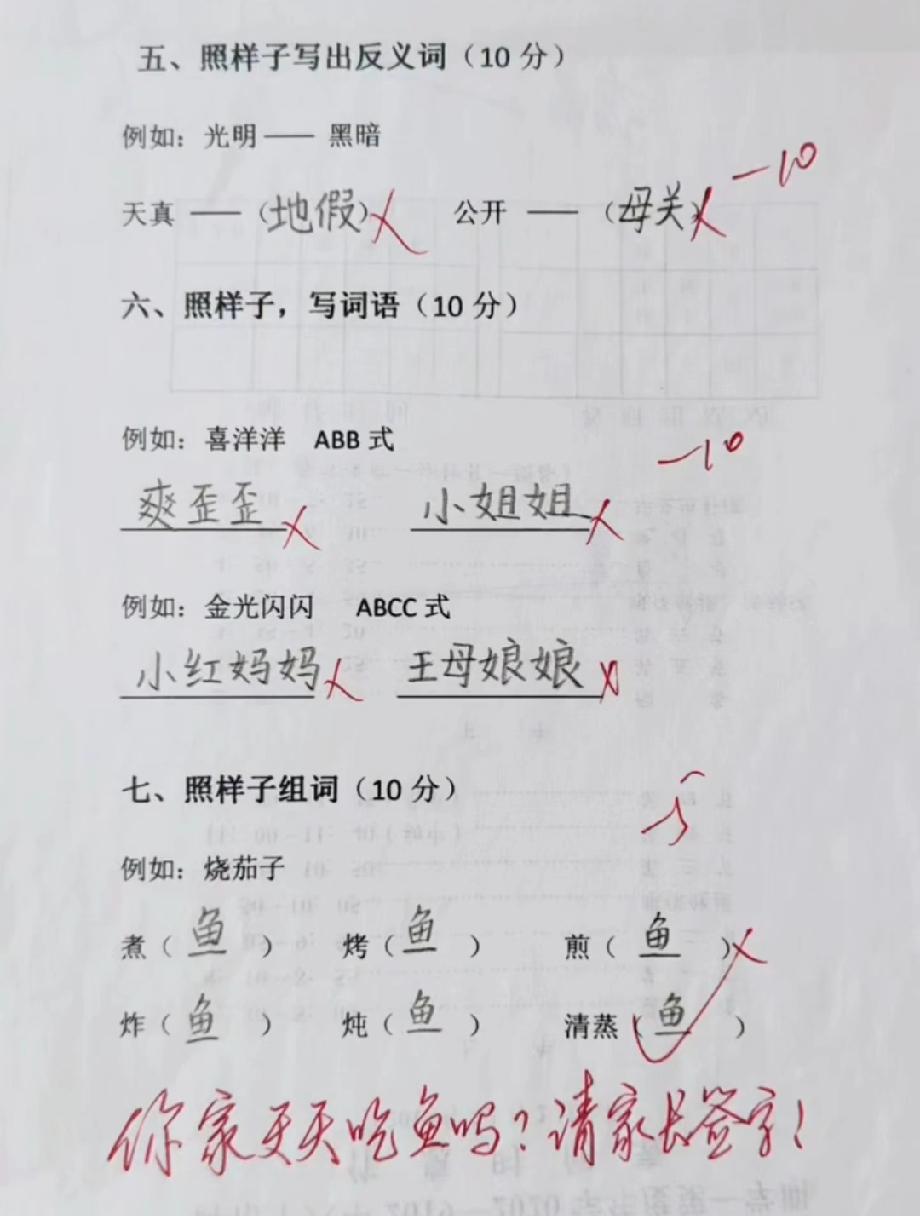 五、照样子写出反义词（10 分）
例如：光明 —— 黑暗
天真 ——（地假） 公开 ——（母关）
-10
六、照样子，写词语（10 分）
例如：喜洋洋 ABB 式
-10
爽歪歪 小姐姐
例如：金光闪闪 ABCC 式
小红妈妈 王母娘娘
七、照样子组词（10 分）
-5
例如：烧茄子
煮（鱼） 烤（鱼） 煎（鱼）
炸（鱼） 炖（鱼） 清蒸（鱼）
你家天天吃鱼吗？请家长签字！